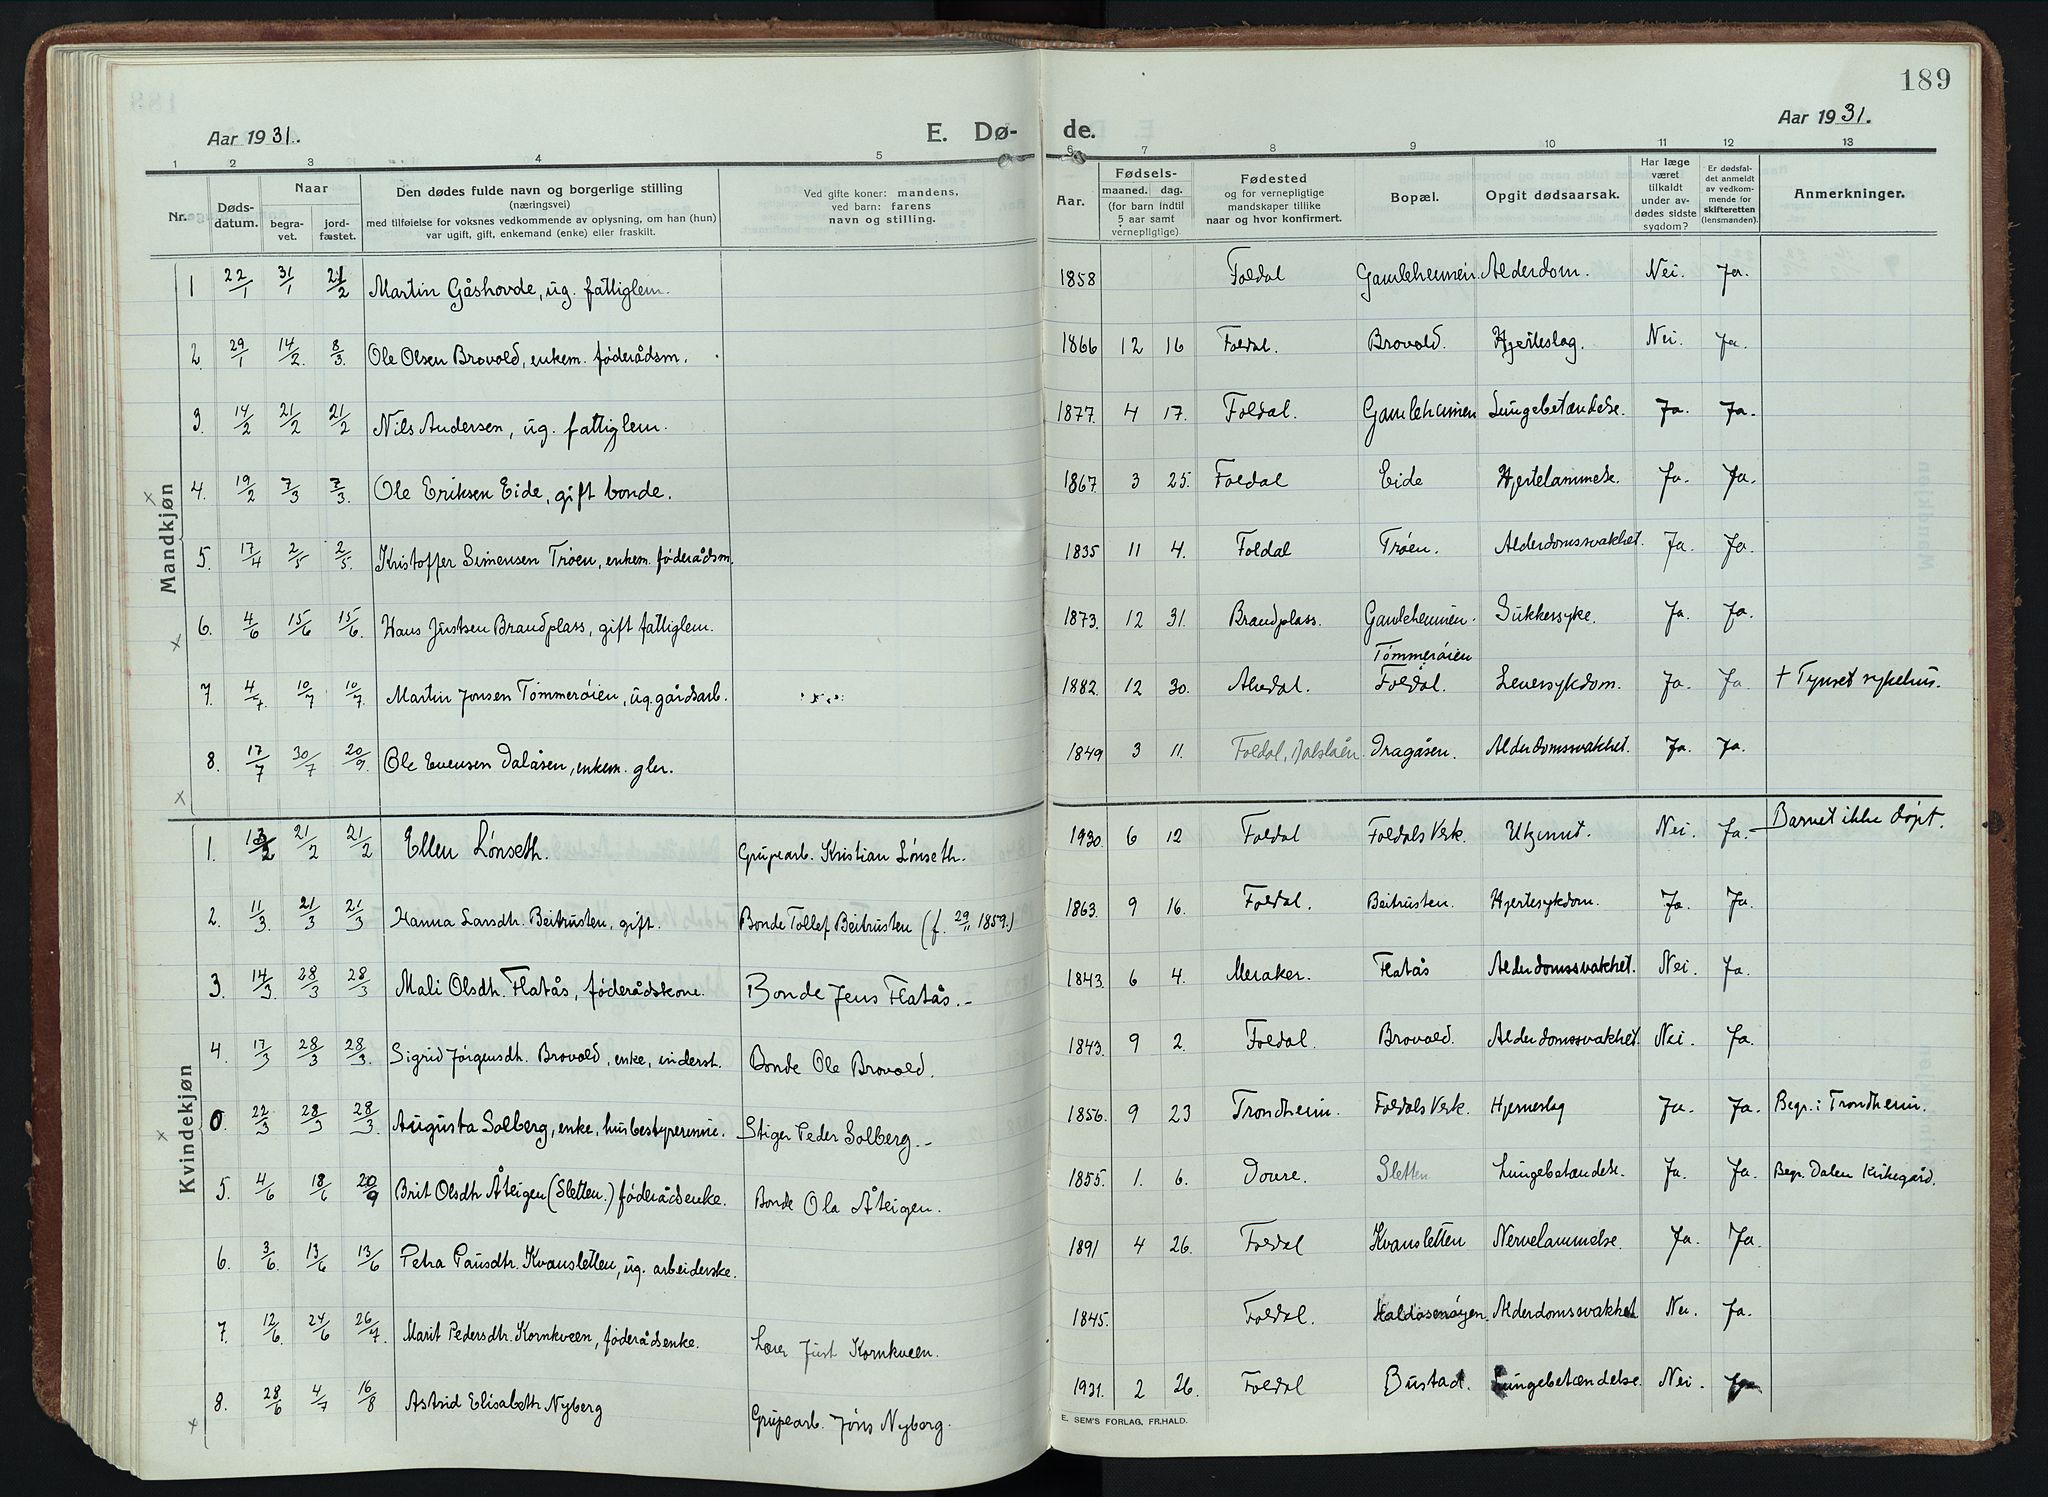 189
Aar 1931.
E. Dø-
de.
Aar 1931.
1 2 3 4 5 6 7 8 9 10 11 12 13
Nr. Døds-datum. Naar begra-vet. jord-fæstet. Den dødes fulde navn og borgerlige stilling (næringsvei) med tilføielse for voksnes vedkommende av oplysning, om han (hun) var ugift, gift, enkemand (enke) eller fraskilt. Ved gifte koner: mandens, ved barn: farens navn og stilling. Aar. Fødsels- maaned. dag. (for barn indtil 5 aar samt vernepligtige) Fødested og for vernepligtige mandskaper tillike naar og hvor konfirmert. Bopæl. Opgit dødsaarsak. Har læge været tilkaldt under av-dødes sidste sygdom? Er dødsfal-det anmeldt av vedkom-mende for skifteretten (lensmanden). Anmerkninger.
Mandkjøn
1 22/1 31/1 21/2 Martin Gåshovde, ug. fattiglem. 1858 Foldal Gamleheimen Alderdom. Nei. Ja.
2. 29/1 14/2. 8/3. Ole Olsen Brovold, enkem. føderådsm. 1866 12 16 Foldal. Brovold. Hjerteslag. Nei. Ja.
3. 14/2 21/2 21/2 Nils Andersen, ug. fattiglem. 1877. 4 17. Foldal. Gamleheimen Lungebetændelse. Ja. Ja.
× 4. 19/2 7/3 7/3. Ole Eriksen Eide, gift bonde. 1867. 3 25. Foldal Eide Hjertelammelse. Ja. Ja.
5. 17/4 2/5 2/5. Kristoffer Simensen Trøen, enkem. føderådsm. 1835 11 4. Foldal Trøen. Alderdomssvakhet. Ja. Ja.
× 6. 4/6 15/6 15/6. Hans Justsen Brandplass, gift fattiglem. 1873. 12 31. Brandplass. Gamleheimen. Sukkersyke. Ja. Ja.
7. 4/7. 10/7 10/7. Martin Jonsen Tømmerøien, ug. gårdsarb. 1882. 12 30. Alvdal. Tømmerøien Foldal. Leversykdom. Ja. Ja + Tynset sykehus.
× 8. 17/7 30/7 20/9. Ole Evensen Dalåsen, enkem. 1849 3 11. Foldal, Dragåsen. Alderdomssvakhet. Ja. Ja.
Kvindekjøn
1. 21/2 21/2 Ellen Lønseth. Grupearb. Kristian Lønseth. 1930. 6 12 Foldal Foldals Verk. Nei. Ja. Barnet ikke døpt.
2. 11/3. 21/3 21/3 Hanna Larsdtr. Beitrusten, gift. Bonde Tollef Beitrusten (f. 29/11 1859.) 1863. 9 16. Foldal. Beitrusten. Hjertesykdom. Ja. Ja.
3. 14/3. 28/3 28/3 Mali Olsdtr. Flatås, føderådskone. Bonde Jens Flatås.- 1843. 6 4. Meraker. Flatås Alderdomssvakhet. Nei. Ja.
4. 17/3 28/3 28/3. Sigrid Jørgensdtr. Brovold, enke, inderst. Bonde Ole Brovold. 1843. 9 2. Foldal. Brovold. Alderdomssvakhet. Nei. Ja.
× 0. 22/3 28/3 28/3. Augusta Solberg, enke, husbestyrerinne. Stiger Peder Solberg.- 1856. 9 23 Trondheim. Foldals Verk. Hjerneslag Ja. Ja. Begr. i Trondheim.
5. 4/6 18/6 20/9 Brit Olsdtr Åteigen (Sletten.) føderådsenke. Bonde Ola Åteigen. 1855. 1. 6. Dovre. Sletten Lungebetændelse. Ja. Ja. Begr. Dalen Kirkegård.
6. 3/6. 13/6 13/6 Petra Paulsdtr. Kvansletten, ug. arbeiderske. 1891 4 26. Foldal Kvansletten Nervelammelse. Ja. Ja.
7. 12/6 24/6 26/7 Marit Pedersdtr. Kornkveen, føderådsenke. Lærer Just Kornkveen. 1845. Foldal. Haldosenøyen. Alderdomssvakhet Nei. Ja.
× 8. 28/6 4/7 16/8 Astrid Elisabeth Nyberg Grupearb. Jöns Nyberg. 1931. 2 26. Foldal Bustad. Lungebetændelse. Nei. Ja.
E. SEM'S FORLAG, FR.HALD.